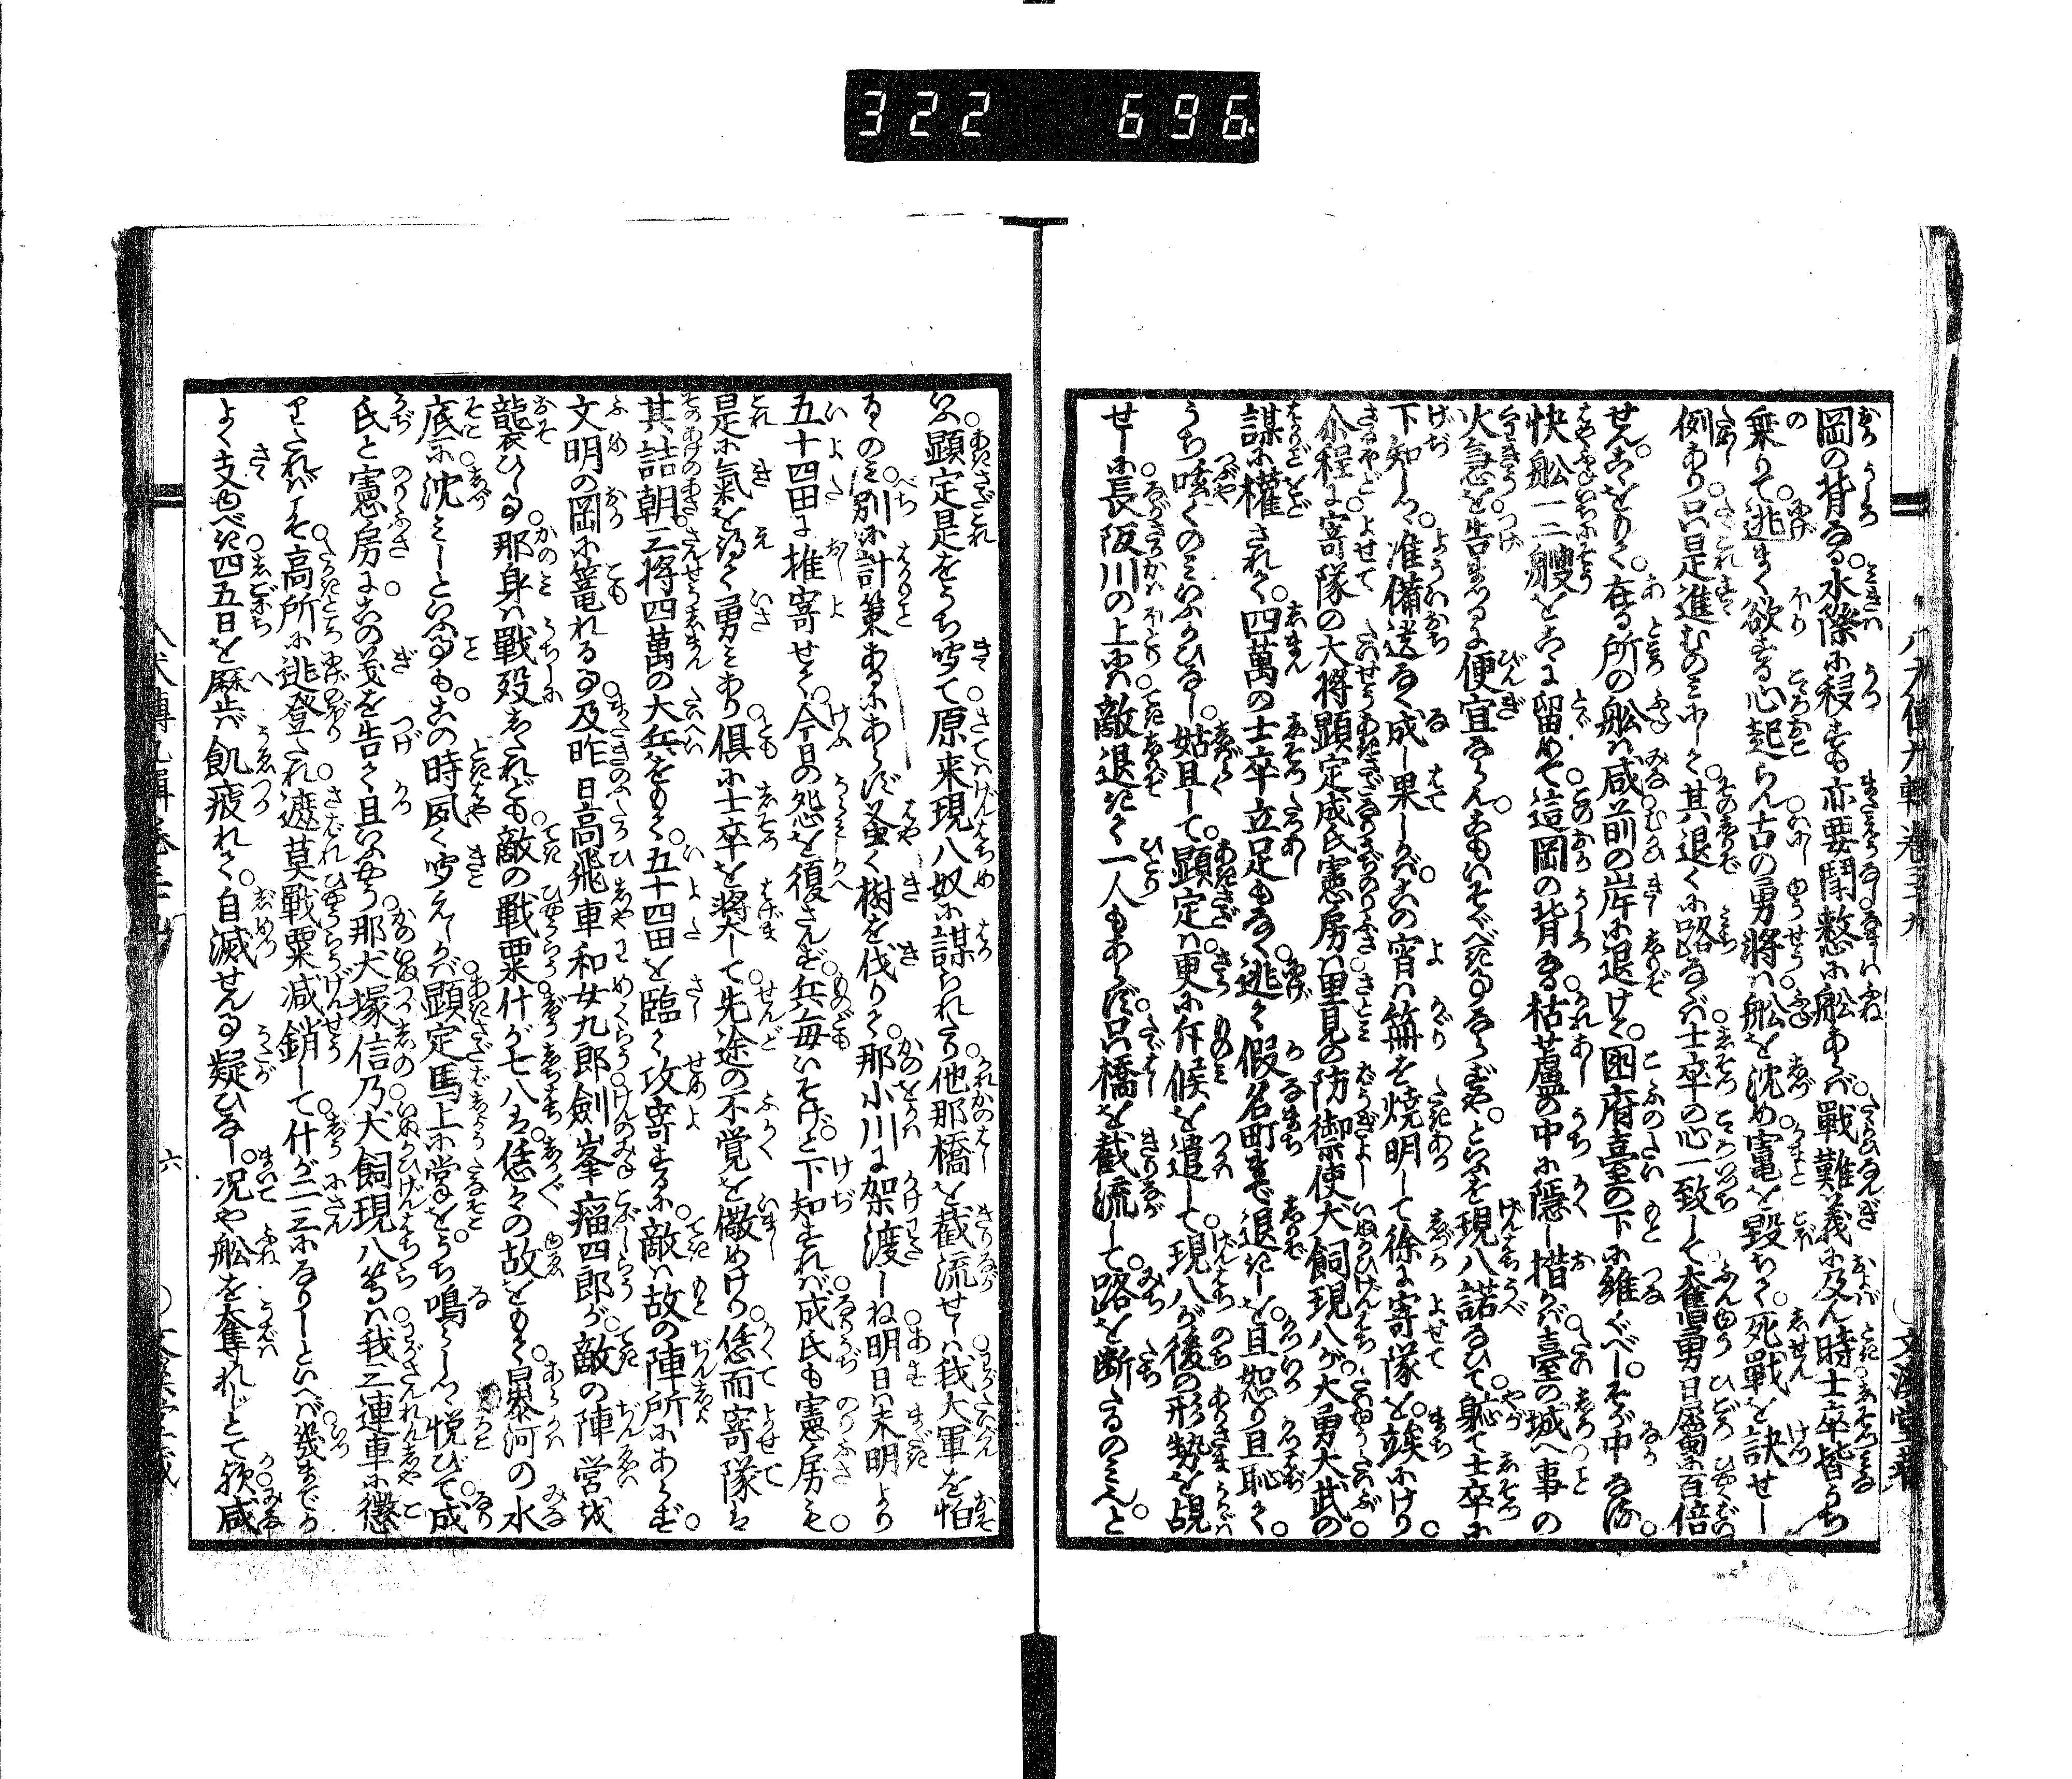 322 696
岡の背なる水際に程もなく亦要闘懸に舩あらバ戦難義に及ん時士卒皆うち
乗りて逃まく欲する心起らん古の勇將ハ舩を沈め竃を毀ちて死戰を決せし
例あり只是進むのミにして其退くに路なけれバ士卒の心一致して奮勇日属に百倍
せんこゝをもて在る所の舩ハ咸前の岸に退けて国府臺の下に維ぐべしそが中なる
快舩一二艘をこゝに留めて這岡の背なる枯芦蘆の中に隠し措バ臺の城へ事の
火急を告まゐる便宜ならんこもいそぐべき事ならずやといふを現八諾なひて軈て士卒に
下知しつ准備送なく成し果しかバこの宵ハ篝を焼明して徐に寄隊を俟にけり
介程に寄隊の大將顕定成氏憲房ハ里見の防禦使犬飼現八が大勇大武の
謀に權されて四萬の士卒立足もなく逃て假名町まで退きしを且怒り且恥て
うち呟くのミいふかひなし姑且して顕定ハ更に斥候を遣して現八が後の形勢を覘
せしに長阪川の上にハ敵退きて一人もあらず只橋を截流して路を断たるのミ也と
いふ顕定是をうち聞て原来現八奴に謀られたり他那橋を截流せしハ我大軍を怕
るゝのミ別に計策あるにあらず蚤く樹を伐りて那小川に架渡しね明日ハ未明より
五十四田に推寄せて今日の怨を復さんぞ兵毎いそげと下知すれバ成氏も憲房も
是に氣を得て勇ミあり俱に士卒を將して先途の不覚を儆めけり恁而寄隊は
其詰朝三將四萬の大兵をもて五十四田を臨て攻寄するに敵ハ故の陣所にあらず
文明の岡に篭れる事及昨日高飛車和女九郎劍峯痛四郎が敵の陣営を
襲ひし事那身ハ戰歿したれども敵の戰粟什が七八は恁々の故をもて暴河の水
底に沈ミしといふ事もこの時夙く聞えしかバ顕定馬上に掌をうち鳴らしつ悦びて成
氏と憲房に云云の義を告て且いふやう那犬塚信乃犬飼現八等ハ我三連車に懲
りたれバこそ高所に逃登たれ遮莫戰粟減銷して什が二三になりしといへバ幾までか
よく支ゆべき四五日を歴バ飢疲れて自滅せん事疑ひなし况や舩を奪れじとて欤咸
八犬傳九輯巻三十九
六
文溪堂藏